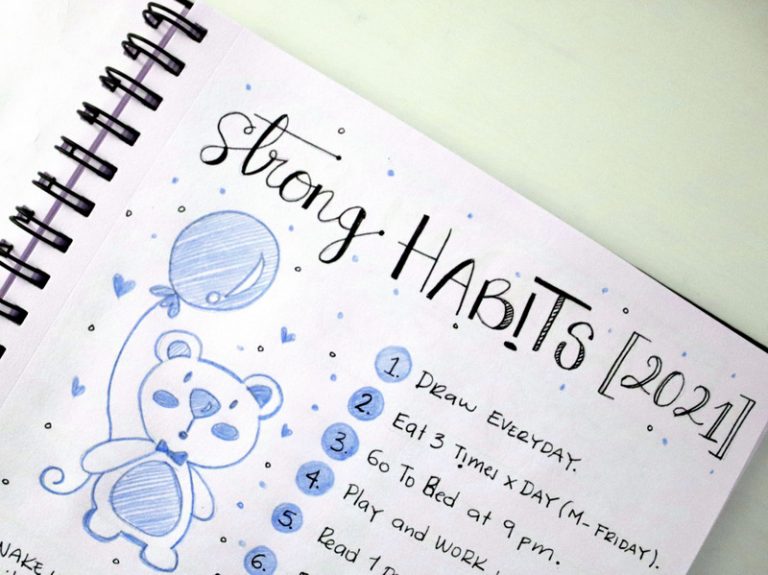 Strong HABITS [2021]
1. DRAW EVERYDAY.
2. Eat 3 Times x DAY (M-FRIDAY).
3. Go To Bed at 9 pm.
4. Play and WORK
5. Read 1
6.